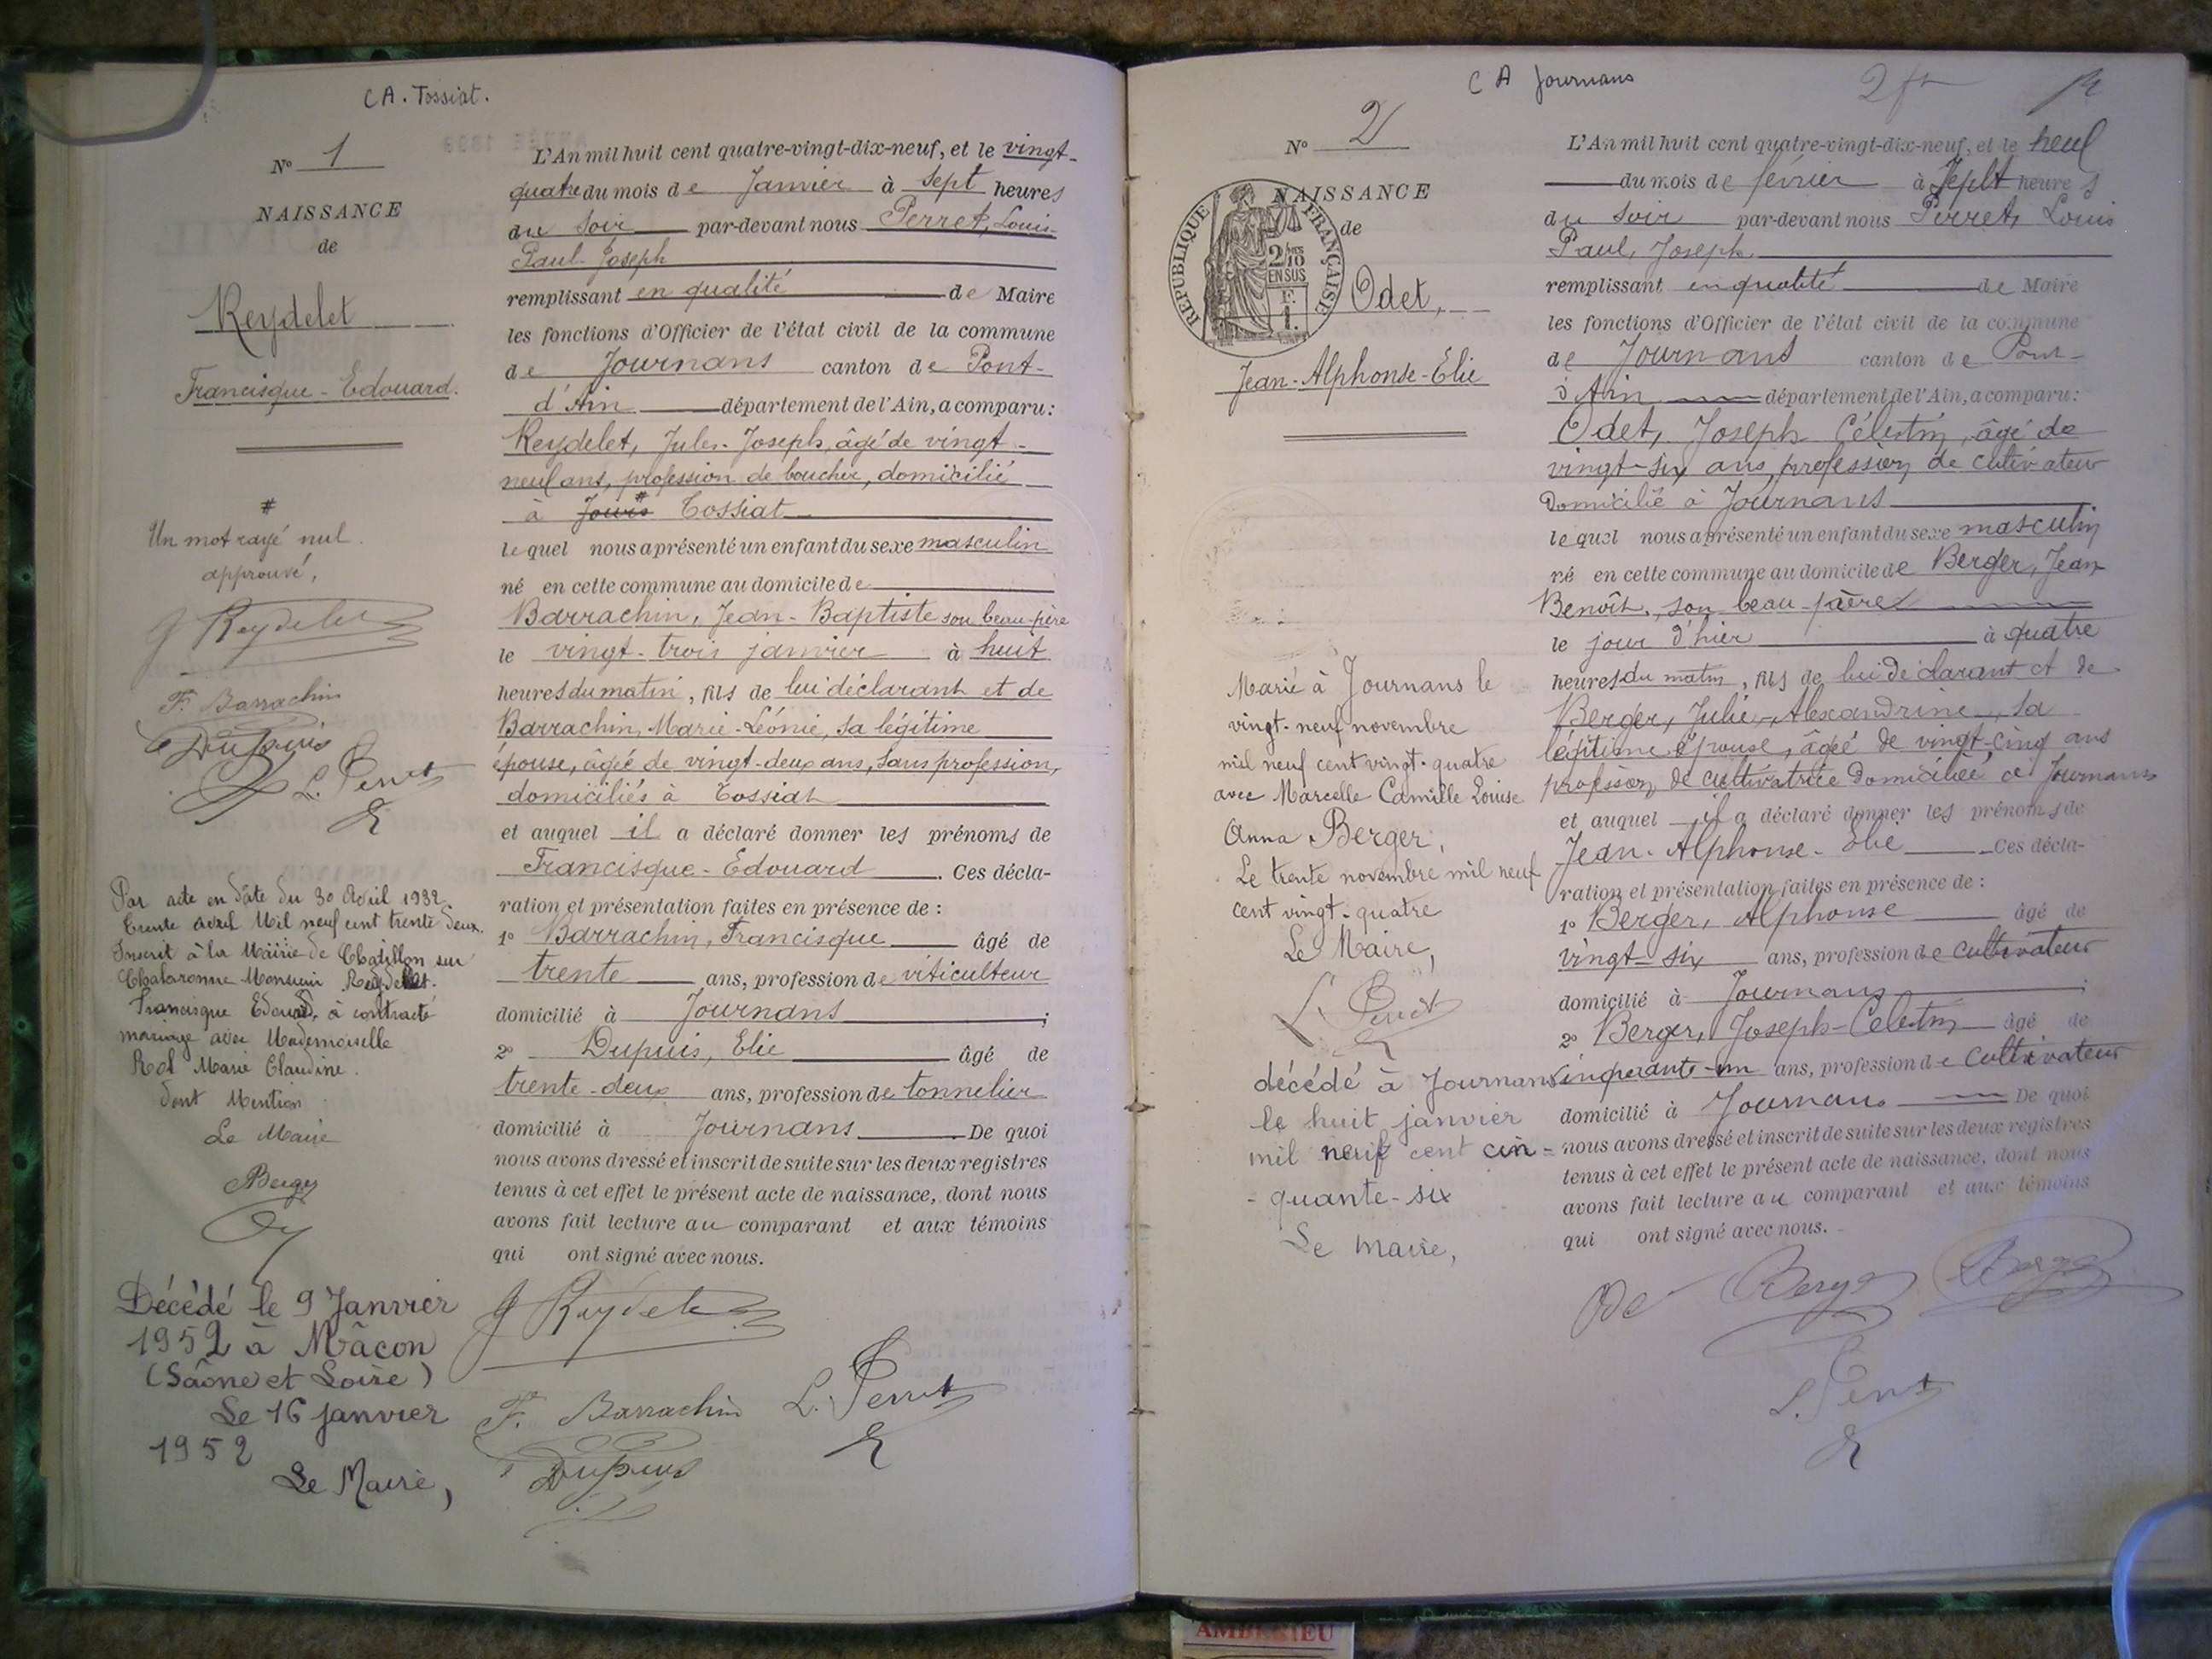 CA. Tossiat.
N° 1
NAISSANCE
de
Reydelet
Francisque-Edouard.
#
Un mot rayé nul
approuvé,
J Reydelet
F. Barrachin
Dupuis
L. Perret
Par acte en date du 30 Avril 1932.
trente avril Mil neuf cent trente deux.
Inscrit à la Mairie de Chatillon sur
Chalaronne Monsieur Reydelet.
Francisque Edouard, a contracté
mariage avec Mademoiselle
Marie Claudine.
dont Mention
Le Maire
Berger
Décédé le 9 Janvier
1952 à Mâcon
(Saône et Loire)
Le 16 janvier
1952
Le Maire,
L'An mil huit cent quatre-vingt-dix-neuf, et le vingt-
quatre du mois de Janvier à sept heures
du soir par-devant nous Perret, Louis-
Paul-Joseph
remplissant en qualité de Maire
les fonctions d'Officier de l'état civil de la commune
de Journans canton de Pont-
d'Ain département de l'Ain, a comparu:
Reydelet, Jules-Joseph, âgé de vingt-
neuf ans, profession de boucher, domicilié
à # Tossiat
lequel nous a présenté un enfant du sexe masculin
né en cette commune au domicile de
Barrachin, Jean-Baptiste son beau-père
le vingt-trois janvier à huit
heures du matin, fils de lui déclarant et de
Barrachin, Marie-Léonie, sa légitime
épouse, âgée de vingt-deux ans, sans profession,
domiciliés à Tossiat
et auquel il a déclaré donner les prénoms de
Francisque-Edouard. Ces décla-
ration et présentation faites en présence de :
1° Barrachin, Francisque âgé de
trente ans, profession de viticulteur
domicilié à Journans ;
2° Dupuis, Elie âgé de
trente-deux ans, profession de tonnelier
domicilié à Journans De quoi
nous avons dressé et inscrit de suite sur les deux registres
tenus à cet effet le présent acte de naissance, dont nous
avons fait lecture au comparant et aux témoins
qui ont signé avec nous.
J Reydelet
F. Barrachin L. Perret
Dupuis
CA Journans
2
N° 2
NAISSANCE
de
REPUBLIQUE FRANÇAISE
2/10
EN SUS
F.
1.
Odet,
Jean-Alphonse-Elie
Marié à Journans le
vingt-neuf novembre
mil neuf cent vingt-quatre
avec Marcelle Camille Louise
Anna Berger,
Le trente novembre mil neuf
cent vingt-quatre
Le Maire,
L. Perret
décédé à Journans
le huit janvier
mil neuf cent cin=
-quante-six
Le Maire,
L'An mil huit cent quatre-vingt-dix-neuf, et le neuf
du mois de février à Sept heures
du soir par-devant nous Perret, Louis
Paul, Joseph
remplissant en qualité de Maire
les fonctions d'Officier de l'état civil de la commune
de Journans canton de Pont-
d'Ain département de l'Ain, a comparu:
Odet, Joseph Célestin, âgé de
vingt-six ans, profession de cultivateur
domicilié à Journans
lequel nous a présenté un enfant du sexe masculin
né en cette commune au domicile de Berger, Jean
Benoît, son beau-père
le jour d'hier à quatre
heures du matin, fils de lui déclarant et de
Berger, Julie-Alexandrine, sa
légitime épouse, âgée de vingt-cinq ans
profession de cultivatrice domiciliée à Journans
et auquel il a déclaré donner les prénoms de
Jean-Alphonse-Elie Ces décla-
ration et présentation faites en présence de :
1° Berger, Alphonse âgé de
vingt-six ans, profession de cultivateur
domicilié à Journans ;
2° Berger, Joseph-Celestin âgé de
cinquante-un ans, profession de cultivateur
domicilié à Journans De quoi
nous avons dressé et inscrit de suite sur les deux registres
tenus à cet effet le présent acte de naissance, dont nous
avons fait lecture au comparant et aux témoins
qui ont signé avec nous.
Berger Berger
L. Perret